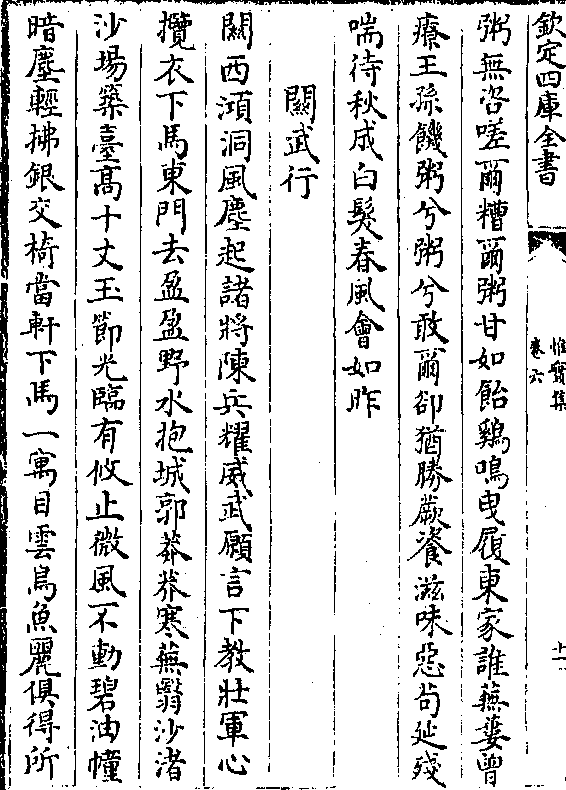 欽定四庫全書
惟實集
卷六
十一
粥無咨嗟爾糟爾粥甘如飴鷄鳴曳履東家誰蕪蔞曾
療王孫饑粥兮粥兮敢爾卻猶勝蕨餐滋味惡句延殘
喘待秋成白髮春風會如昨
閱武行
關西澒洞風塵起諸將陳兵耀威武願言下教壯軍心
攬衣下馬東門去盈盈野水抱城郭莽莽寒蕪翳沙渚
沙場築臺高十丈玉節光臨有攸止微風不動碧油幢
暗塵輕拂銀交椅當軒下馬一寓目雲鳥魚麗俱得所